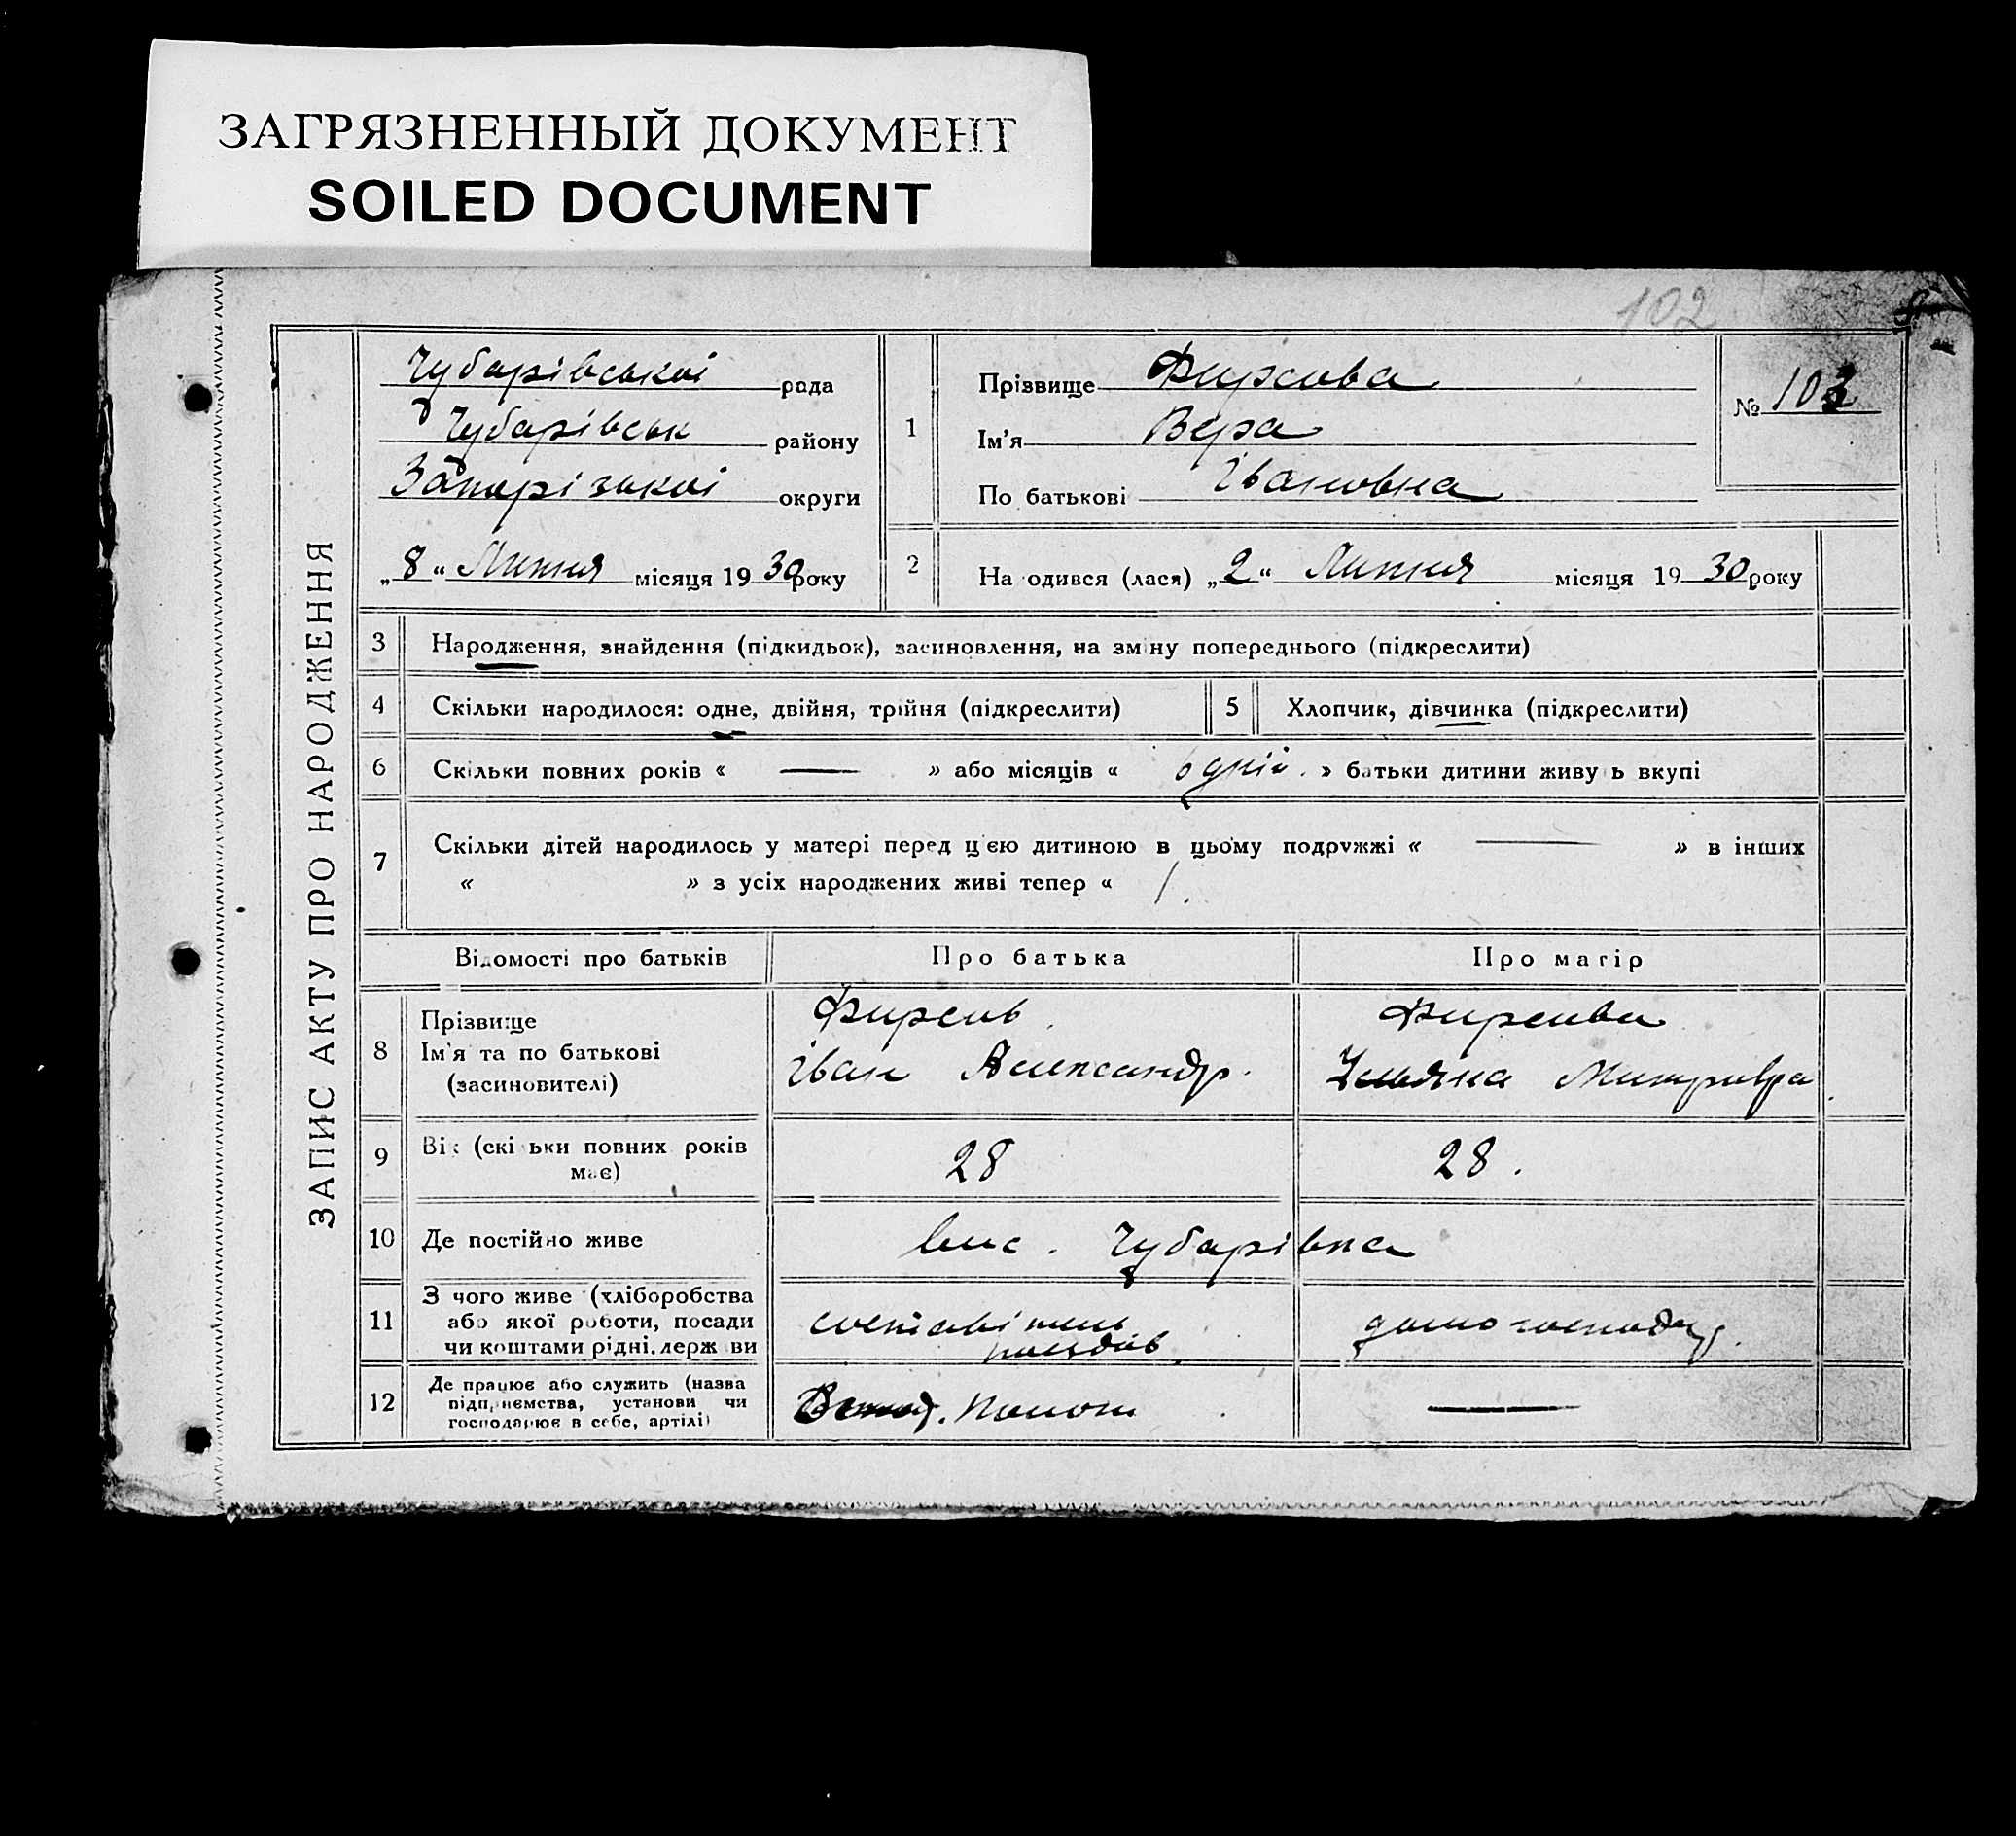 ЗАГРЯЗНЕННЫЙ ДОКУМЕНТ
SOILED DOCUMENT
102
ЗАПИС АКТУ ПРО НАРОДЖЕННЯ
Чубарівської рада
Чубарівськ району
Запорізької округи
„8“ Липня місяця 1930 року
1
Прізвище Фирсова
Ім'я Вера
По батькові Івановна
№ 103
2 На одився (лася) „2“ Липня місяця 1930 року
3 Народження, знайдення (підкидьок), засиновлення, на зміну попереднього (підкреслити)
4 Скільки народилося: одне, двійня, трійня (підкреслити) 5 Хлопчик, дівчинка (підкреслити)
6 Скільки повних років « — » або місяців « » батьки дитини живу ь вкупі
7 Скільки дітей народилось у матері перед цією дитиною в цьому подружжі « — » в інших
« » з усіх народжених живі тепер « 1.
Відомості про батьків Про батька Про матір
8 Прізвище Фирсов Фирсова
Ім'я та по батькові Іван Александр. Ульяна
(засиновителі)
9 Вік (скі ьки повних років має) 28 28.
10 Де постійно живе вис. Чубарівка
11 З чого живе (хліборобства
або якої роботи, посади
чи коштами рідні, держ ви
составітель
поездів
домогосподар.
12 Де працює або служить (назва
підприємства, установи чи
господарює в себе, артілі)
—